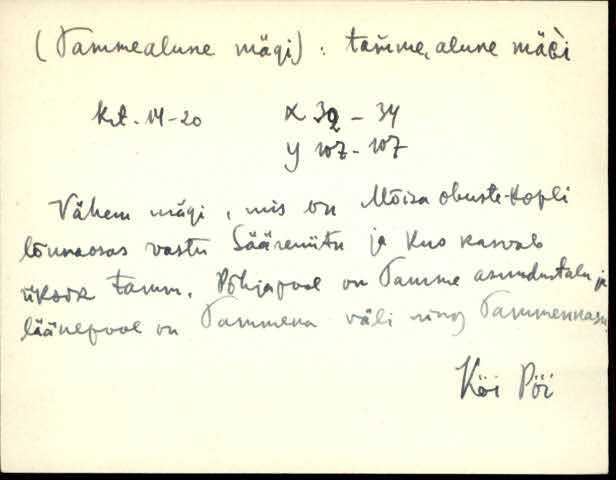 (Tammealune mägi) : tam̄me, alune mäGi
krt. 14-20 X 32 - 34
Y 107 - 107
Vähem mägi, mis on Mõisa obuste-kopli
lõunaosas vastu Sääreniitu ja kus kasvab
üksik tamm. Põhjapool on Tamme asundustalu ja
läänepool on Tammena väli ning
Köi Pöi